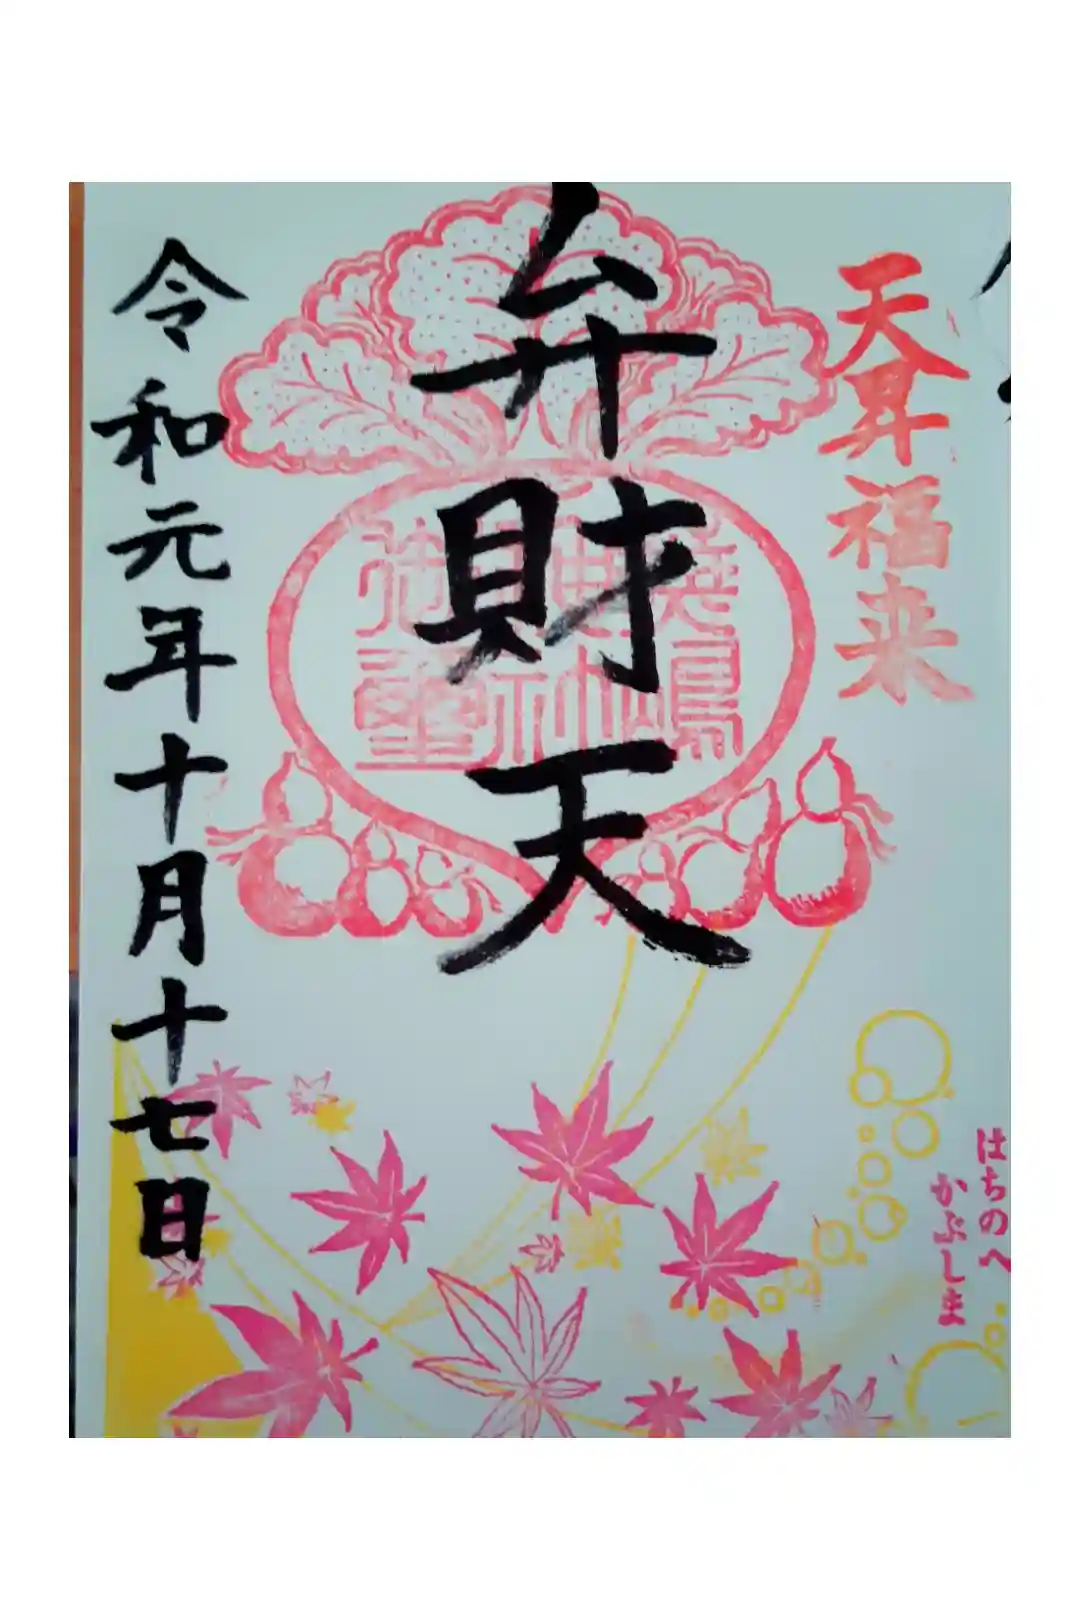 天昇福来
はちのへ
かぶしま
弁財天
蕪嶋
神社
御璽
令和元年十月十七日